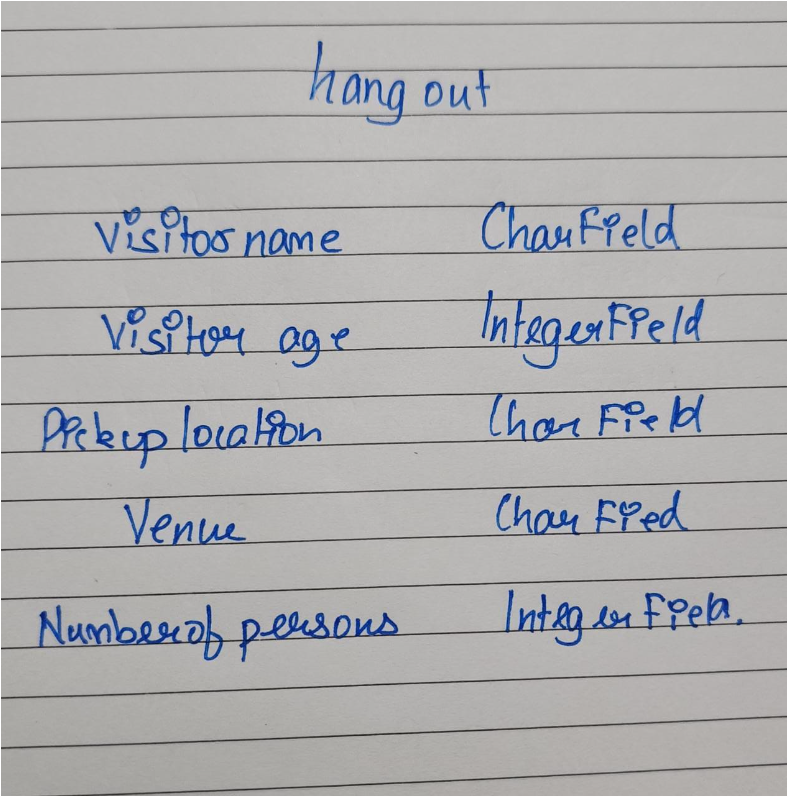 hang out
Visitor name CharField
Visitor age IntegerField
Pickup location CharField
Venue CharFied
Number of persons IntegerField.